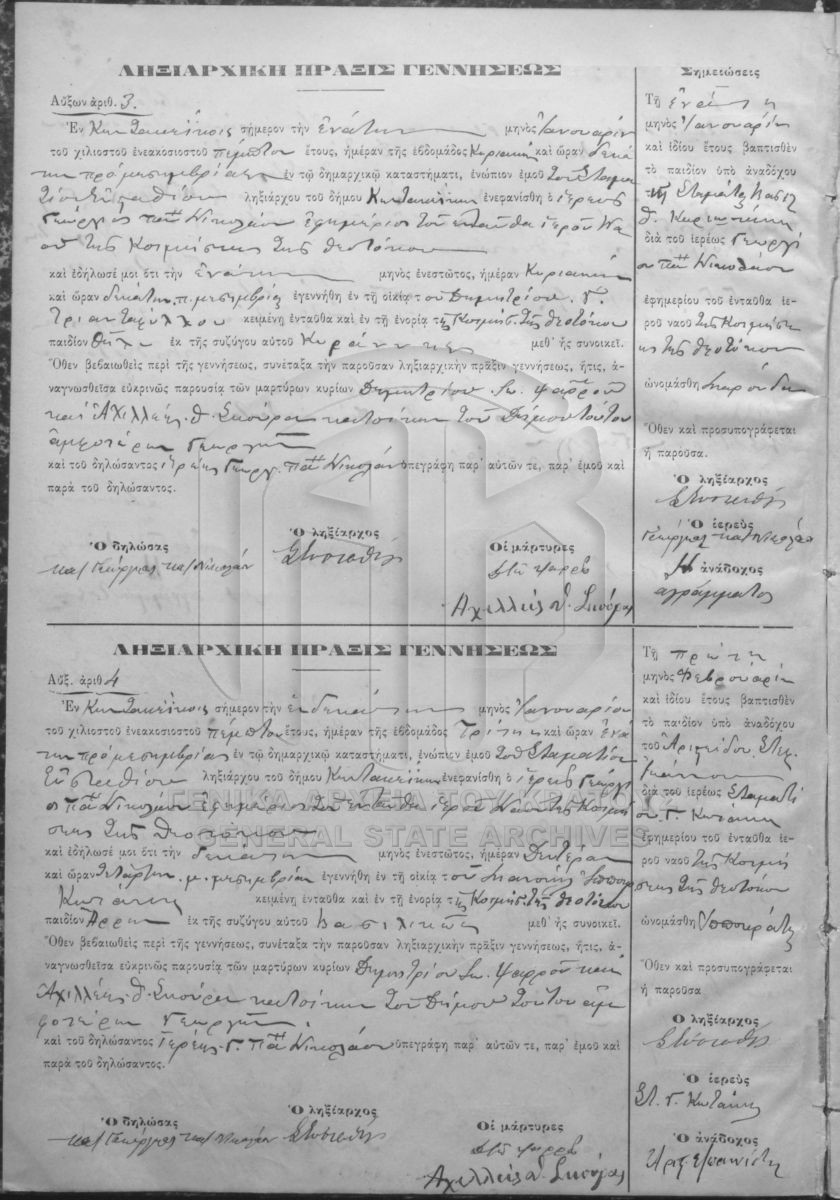 ΛΗΞΙΑΡΧΙΚΗ ΠΡΑΞΙΣ ΓΕΝΝΗΣΕΩΣ
Αὔξων ἀριθ. 3.
Ἐν σήμερον τὴν ἐνάτην μηνὸς Ἰανουαρίου
τοῦ χιλιοστοῦ ἐνεακοσιοστοῦ πέμπτου ἔτους, ἡμέραν τῆς ἑβδομάδος Κυριακὴν καὶ ὥραν δεκά
την πρὸ μεσημβρίας ἐν τῷ δημαρχικῷ καταστήματι, ἐνώπιον ἐμοῦ τοῦ Σταμα
τίου Εὐσταθίου ληξιάρχου τοῦ δήμου ἐνεφανίσθη ὁ ἱερεὺς
Γεώργιος παπᾶ Νικολάου ἐφημέριος τοῦ ἐνταῦθα ἱεροῦ Να
οῦ τῆς Κοιμήσεως τῆς Θεοτόκου
καὶ ἐδήλωσέ μοι ὅτι τὴν ἐνάτην μηνὸς ἐνεστῶτος, ἡμέραν Κυριακὴν
καὶ ὥραν δεκάτην π. μεσημβρίας ἐγεννήθη ἐν τῇ οἰκίᾳ τοῦ Δημητρίου. Γ.
Τριανταφύλλου κειμένῃ ἐνταῦθα καὶ ἐν τῇ ἐνορίᾳ τῆς Κοιμήσ. τῆς Θεοτόκου
παιδίον θῆλυ ἐκ τῆς συζύγου αὐτοῦ μεθ' ἧς συνοικεῖ.
Ὅθεν βεβαιωθεὶς περὶ τῆς γεννήσεως, συνέταξα τὴν παροῦσαν ληξιαρχικὴν πρᾶξιν γεννήσεως, ἥτις, ἀ-
ναγνωσθεῖσα εὐκρινῶς παρουσίᾳ τῶν μαρτύρων κυρίων Δημητρίου Ψαρροῦ
καὶ Ἀχιλλέως Θ. Σκούρα κατοίκων τοῦ Δήμου τούτου
ἀμφοτέρων Γεωργῶν
καὶ τοῦ δηλώσαντος ἱερέως Γεωργ. παπᾶ Νικολάου ὑπεγράφη παρ' αὐτῶν τε, παρ' ἐμοῦ καὶ
παρὰ τοῦ δηλώσαντος.
Ὁ δηλώσας
Γεώργιος παπᾶ Νικολάου
Ὁ ληξίαρχος
Σ Εὐσταθίου
Οἱ μάρτυρες
Ἀχιλλεὺς Θ. Σκούρας
Σημειώσεις
Τῇ ἐνάτῃ
μηνὸς Ἰανουαρίου
καὶ ἰδίου ἔτους βαπτισθὲν
τὸ παιδίον ὑπὸ ἀναδόχου
διὰ τοῦ ἱερέως Γεωργί
ου παπᾶ Νικολάου
ἐφημερίου τοῦ ἐνταῦθα ἱε-
ροῦ ναοῦ τῆς Κοιμήσε
ως τῆς Θεοτόκου
ὠνομάσθη
Ὅθεν καὶ προσυπογράφεται
ἡ παροῦσα.
Ὁ ληξίαρχος
Σ Εὐσταθίου
Ὁ ἱερεὺς
Γεώργιος παπᾶ Νικολάου
Ἡ ἀνάδοχος
ἀγράμματος
ΛΗΞΙΑΡΧΙΚΗ ΠΡΑΞΙΣ ΓΕΝΝΗΣΕΩΣ
Αὔξ. ἀριθ 4
Ἐν σήμερον τὴν ἑνδεκάτην μηνὸς Ἰανουαρίου
τοῦ χιλιοστοῦ ἐνεακοσιοστοῦ πέμπτου ἔτους, ἡμέραν τῆς ἑβδομάδος Τρίτην καὶ ὥραν ἐνά
την πρὸ μεσημβρίας ἐν τῷ δημαρχικῷ καταστήματι, ἐνώπιον ἐμοῦ τοῦ Σταματίου
Εὐσταθίου ληξιάρχου τοῦ δήμου ἐνεφανίσθη ὁ ἱερεὺς Γεώργι
ος παπᾶ Νικολάου ἐφημέριος τοῦ ἐνταῦθα ἱεροῦ Ναοῦ τῆς Κοιμή
σεως τῆς Θεοτόκου
καὶ ἐδήλωσέ μοι ὅτι τὴν δεκάτην μηνὸς ἐνεστῶτος, ἡμέραν Δευτέραν
καὶ ὥραν τετάρτην μ. μεσημβρίαν ἐγεννήθη ἐν τῇ οἰκίᾳ τοῦ
κειμένῃ ἐνταῦθα καὶ ἐν τῇ ἐνορίᾳ τῆς Κοιμήσ. τῆς Θεοτόκου
παιδίον Ἄρρεν ἐκ τῆς συζύγου αὐτοῦ Βασιλικῆς μεθ' ἧς συνοικεῖ.
Ὅθεν βεβαιωθεὶς περὶ τῆς γεννήσεως, συνέταξα τὴν παροῦσαν ληξιαρχικὴν πρᾶξιν γεννήσεως, ἥτις, ἀ-
ναγνωσθεῖσα εὐκρινῶς παρουσίᾳ τῶν μαρτύρων κυρίων Δημητρίου Ψαρροῦ καὶ
Ἀχιλλέως Θ. Σκούρα κατοίκων τοῦ Δήμου τούτου ἀμ
φοτέρων Γεωργῶν.
καὶ τοῦ δηλώσαντος Ἱερέως Γ. παπᾶ Νικολάου ὑπεγράφη παρ' αὐτῶν τε, παρ' ἐμοῦ καὶ
παρὰ τοῦ δηλώσαντος.
Ὁ δηλώσας
Γεώργιος παπᾶ Νικολάου
Ὁ ληξίαρχος
Σ Εὐσταθίου
Οἱ μάρτυρες
Ἀχιλλεὺς Θ. Σκούρας
Τῇ πρώτῃ
μηνὸς Φεβρουαρίου
καὶ ἰδίου ἔτους βαπτισθὲν
τὸ παιδίον ὑπὸ ἀναδόχου
τοῦ Ἀριστείδου
διὰ τοῦ ἱερέως Σταματί
ου Γ.
ἐφημερίου τοῦ ἐνταῦθα ἱε-
ροῦ ναοῦ τῆς Κοιμή
σεως τῆς Θεοτόκου
ὠνομάσθη Ἱπποκράτης
Ὅθεν καὶ προσυπογράφεται
ἡ παροῦσα
Ὁ ληξίαρχος
Σ Εὐσταθίου
Ὁ ἱερεὺς
Στ. Γ.
Ὁ ἀνάδοχος
ΓΕΝΙΚΑ ΑΡΧΕΙΑ ΤΟΥ ΚΡΑΤΟΥΣ
GENERAL STATE ARCHIVES